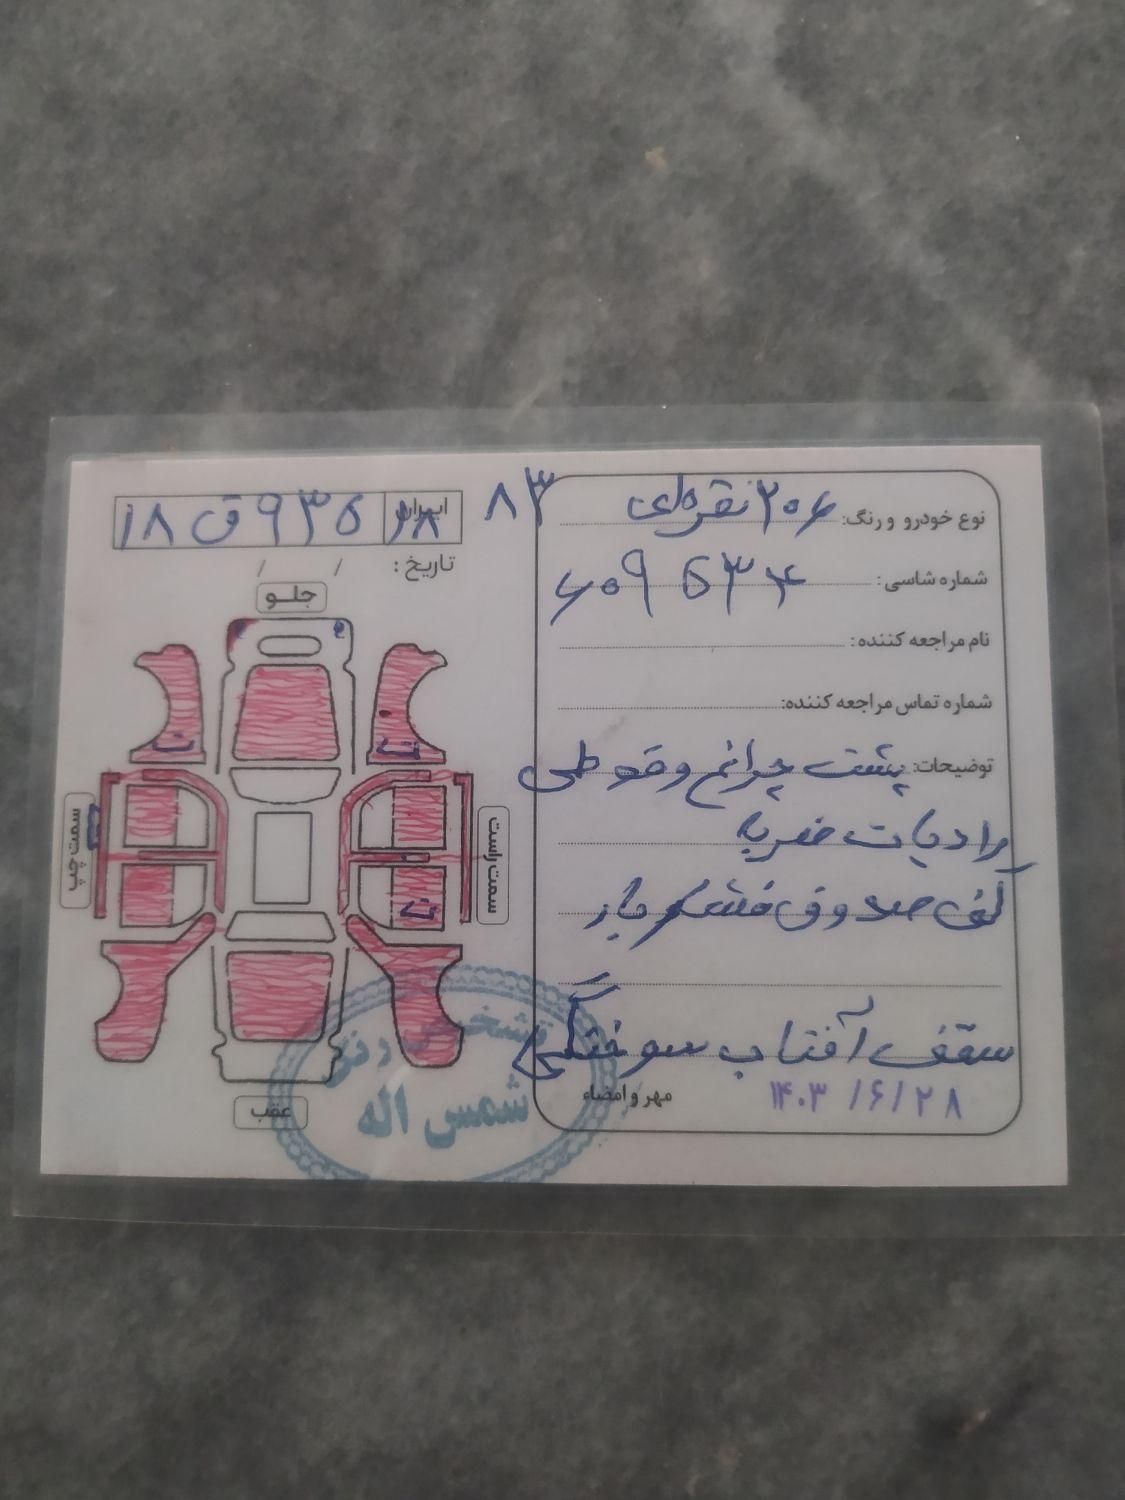 نوع خودرو و رنگ: ۲۰۶ نقره‌ای ۸۳
شماره شاسی: ۶۰۹۵۳۴
نام مراجعه کننده:
شماره تماس مراجعه کننده:
توضیحات: پشت چراغ و قوطی
رادیات ضربه
کف صندوق فشار بار
سقف آفتاب سوختگی
۱۴۰۳/۶/۲۸
مهر و امضاء
ایران ۶۸ ۱۸ ق ۹۳۵
تاریخ: / /
جلـو
ت
ت
سمت چپ
سمت راست
ت
ت
عقب
تشخیص رنگ
شمس اله